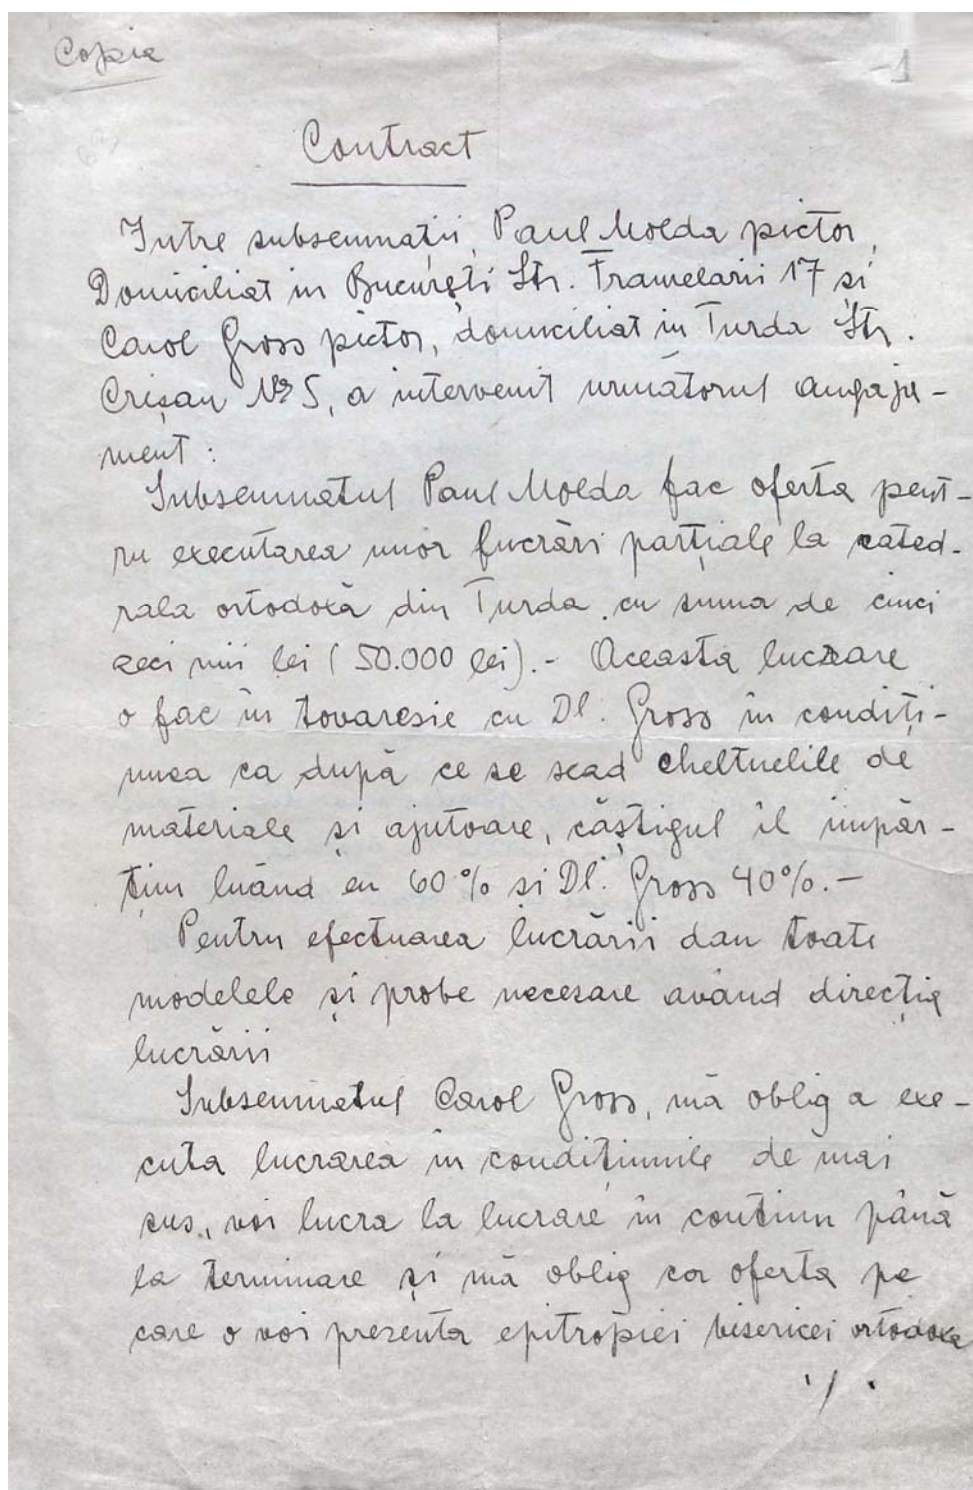 Copie
-1
Contract
Intre subsemnații, Paul Molda pictor,
Domiciliat in București Str. 17 si
Carol Gross pictor, domiciliat in Turda Str.
Crișan No 5, a intervenit următorul angaja-
ment:
Subsemnatul Paul Molda fac oferta pent-
ru executarea unor lucrări parțiale la cated-
rala ortodoxă din Turda cu suma de cinci
zeci mii lei (50.000 lei).- Aceasta lucrare
o fac în tovaresie cu Dl. Gross în condiți-
unea ca după ce se scad cheltuelile de
materiale și ajutoare, câștigul îl împăr-
țim luând eu 60% si Dl. Gross 40%.-
Pentru efectuarea lucrării dau toate
modelele și probe necesare având direcția
lucrării
Subsemnatul Carol Gross, mă oblig a exe-
cuta lucrarea in condițiunile de mai
sus, voi lucra la lucrare in continu până
la terminare și mă oblig ca oferta pe
care o voi prezenta epitropiei bisericei ortodoxe
./.